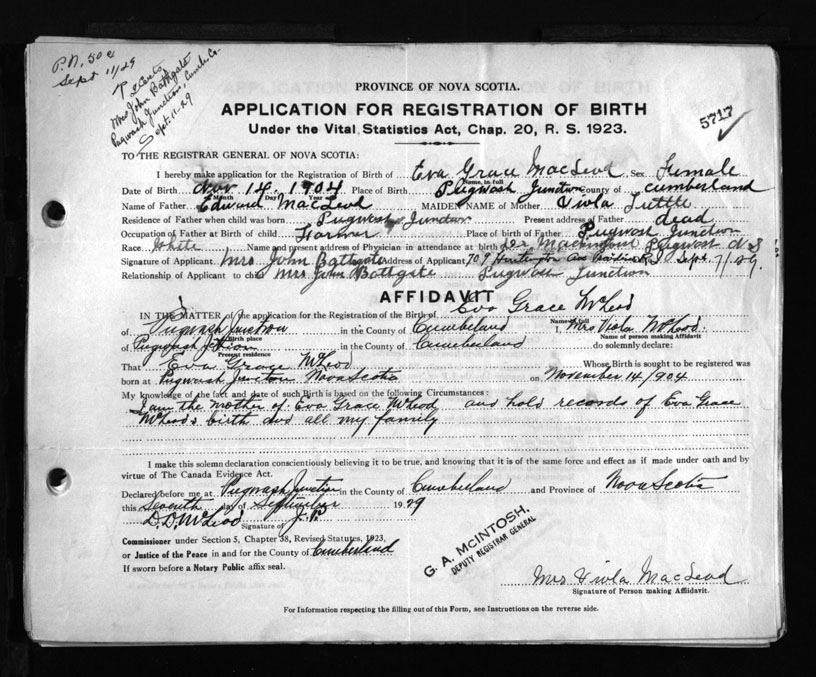 P.N. 50c
Sept 11/29
Mrs John Bathgate
Pugwash Junction, Cumb. Co.
Sept. 11-29
PROVINCE OF NOVA SCOTIA.
APPLICATION FOR REGISTRATION OF BIRTH
Under the Vital Statistics Act, Chap. 20, R. S. 1923.
5717
TO THE REGISTRAR GENERAL OF NOVA SCOTIA:
I hereby make application for the Registration of Birth of Eva Grace MacLeod Sex Female
Name, in full
Date of Birth Nov 14, 1904 Place of Birth Pugwash Junction County of Cumberland
Month Day Year
Name of Father Edward MacLeod MAIDEN NAME of Mother Viola Tuttle
Residence of Father when child was born Pugwash Junction Present address of Father dead
Occupation of Father at Birth of child Farmer Place of birth of Father Pugwash Junction
Race White Name and present address of Physician in attendance at birth Pugwash N S
Signature of Applicant Mrs John Bathgate Address of Applicant 709 Huntington Ave R.I. Sept. 7/29.
Relationship of Applicant to child Mrs John Bathgate Pugwash Junction
AFFIDAVIT
IN THE MATTER of the application for the Registration of the Birth of Eva Grace McLeod
Name in full
of Pugwash Junction in the County of Cumberland I, Mrs Viola McLeod.
Birth place
Name of person making Affidavit
of Pugwash Jction in the County of Cumberland do solemnly declare:
Present residence
That Eva Grace McLeod Whose Birth is sought to be registered was
born at Pugwash Junction Nova Scotia on November 14 1904
My knowledge of the fact and date of such Birth is based on the following Circumstances:
I am the mother of Eva Grace McLeod and hold records of Eva Grace
McLeod's birth and all my family
I make this solemn declaration conscientiously believing it to be true, and knowing that it is of the same force and effect as if made under oath and by
virtue of The Canada Evidence Act.
Declared before me at Pugwash Junction in the County of Cumberland and Province of Nova Scotia
this day of September 1929
D.D. McLeod J.P.
Signature of
Commissioner under Section 5, Chapter 38, Revised Statutes, 1923,
or Justice of the Peace in and for the County of Cumberland
If sworn before a Notary Public affix seal.
G. A. McINTOSH,
DEPUTY REGISTRAR GENERAL
Mrs Viola MacLeod
Signature of Person making Affidavit.
For Information respecting the filling out of this Form, see Instructions on the reverse side.